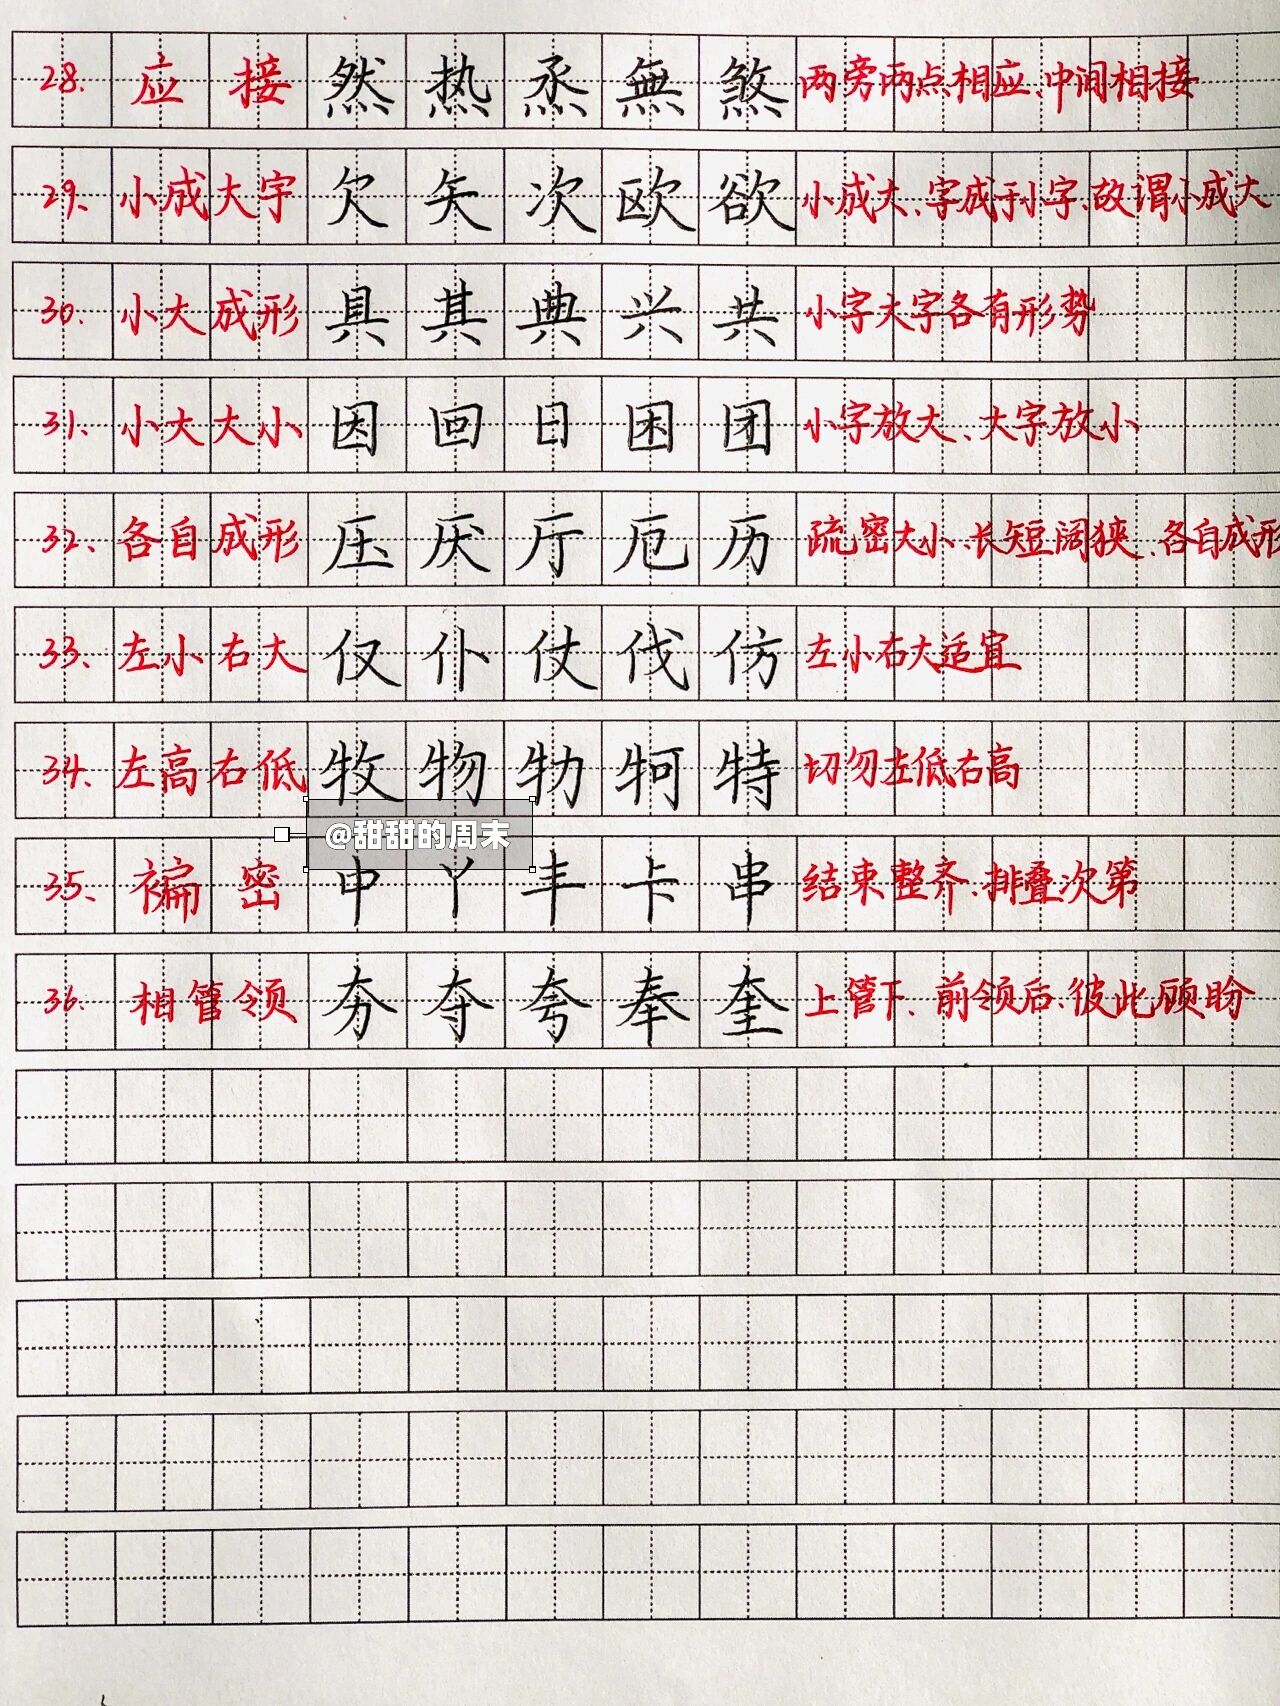 28. 应接 然 热 烝 無 煞 两旁两点相应、中间相接
29、小成大字 欠 矢 次 欧 欲 小成大、字成于小字、故谓小成大
30. 小大成形 具 其 典 兴 共 小字大字各有形势
31、小大大小 因 回 日 困 团 小字放大、大字放小
32、各自成形 压 厌 厅 厄 历 疏密大小、长短阔狭、各自成形
33、左小右大 仅 仆 仗 伐 仿 左小右大适宜
34、左高右低 牧 物 牣 牱 特 切勿左低右高
@甜甜的周末
35、褊密 中 丫 丰 卡 串 结束整齐、排叠次第
36. 相管领 夯 夺 夸 奉 奎 上管下、前领后、彼此顾盼